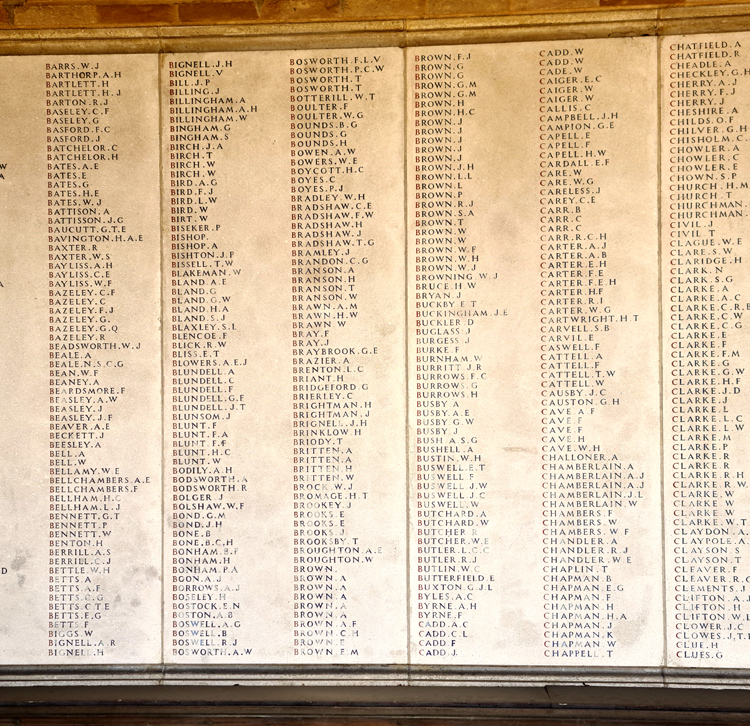 W
A
A
D
BARRS.W.J
BARTHORP.A.H
BARTLETT.H
BARTLETT.H.J
BARTON.R.J
BASELEY.C.F
BASELEY.G
BASFORD.F.C
BASFORD.J
BATCHELOR.C
BATCHELOR.H
BATES.A.E
BATES.E
BATES.G
BATES.H.E
BATES.W.J
BATTISON.A
BATTISSON.J.G
BAUCUTT.G.T.E
BAVINGTON.H.A.E
BAXTER.R
BAXTER.W.S
BAYLISS.A.H
BAYLISS.C.E
BAYLISS.W.F
BAZELEY.C.F
BAZELEY.C
BAZELEY.F.J
BAZELEY.G.
BAZELEY.G.Q
BAZELEY.R
BEADSWORTH.W.J
BEALE.A
BEALE.N.S.C.G
BEAN.W.F
BEANEY.A
BEARDSMORE.F
BEASLEY.A.W
BEASLEY.J
BEASLEY.J.F
BEAVER.A.E
BECKETT.J
BEESLEY.A
BELL.A
BELL.W
BELLAMY.W.E
BELLCHAMBERS.A.E
BELLCHAMBERS.F
BELLHAM.H.C
BELLHAM.L.J
BENNETT.G.T
BENNETT.P
BENNETT.W
BENTON.H
BERRILL.A.S
BERRILL.C.J
BETTLE.W.H
BETTS.A
BETTS.A.F
BETTS.C.G
BETTS.C.T.E
BETTS.E.G
BETTS.F
BIGGS.W
BIGNELL.A.R
BIGNELL.H
BIGNELL.J.H
BIGNELL.V
BILL.J.P
BILLING.J
BILLINGHAM.A
BILLINGHAM.A.H
BILLINGHAM.W
BINGHAM.G
BINGHAM.S
BIRCH.J.A
BIRCH.T
BIRCH.W
BIRCH.W
BIRD.A.G
BIRD.F.J
BIRD.L.W
BIRD.W
BIRT.W
BISEKER.P
BISHOP.
BISHOP.A
BISHTON.J.F
BISSELL.T.W
BLAKEMAN.W
BLAND.A.E
BLAND.G
BLAND.G.W
BLAND.H.A
BLAND.S.J
BLAXLEY.S.L
BLENCOE.F
BLICK.R.W
BLISS.E.T
BLOWERS.A.E.J
BLUNDELL.A
BLUNDELL.C
BLUNDELL.F
BLUNDELL.G.F
BLUNDELL.J.T
BLUNSOM.J
BLUNT.F
BLUNT.F.A
BLUNT.F.F
BLUNT.H.C
BLUNT.W
BODILY.A.H
BODSWORTH.A
BODSWORTH.R
BOLGER.J
BOLSHAW.W.F
BOND.G.M
BOND.J.H
BONE.B
BONE.B.C.H
BONHAM.B.F
BONHAM.H
BONHAM.P.A
BOON.A.J
BORROWS.A.J
BOSELEY.H
BOSTOCK.E.N
BOSTON.A.B
BOSWELL.A.G
BOSWELL.B
BOSWELL.R.J
BOSWORTH.A.W
BOSWORTH.F.L.V
BOSWORTH.P.C.W
BOSWORTH.T
BOSWORTH.T
BOTTERILL.W.T
BOULTER.F
BOULTER.W.G
BOUNDS.B.G
BOUNDS.G
BOUNDS.H
BOWEN.A.W
BOWERS.W.E
BOYCOTT.H.C
BOYES.C
BOYES.P.J
BRADLEY.W.H
BRADSHAW.C.E
BRADSHAW.F.W
BRADSHAW.H
BRADSHAW.J
BRADSHAW.T.G
BRAMLEY.J
BRANDON.C.G
BRANSON.A
BRANSON.H
BRANSON.T
BRANSON.W
BRAWN.A.M
BRAWN.H.W
BRAWN.W
BRAY.F
BRAY.J
BRAYBROOK.G.E
BRAZIER.A
BRENTON.L.C
BRIANT.H
BRIDGEFORD.G
BRIERLEY.C
BRIGHTMAN.H
BRIGHTMAN.J
BRIGNELL.J.H
BRINKLOW.H
BRIODY.T
BRITTEN.A
BRITTEN.A
BRITTEN.H
BRITTEN.W
BROCK.W.J
BROMAGE.H.T
BROOKEY.J
BROOKS.E
BROOKS.E
BROOKS.J
BROOKSBY.T
BROUGHTON.A.E
BROUGHTON.W
BROWN.
BROWN.A
BROWN.A
BROWN.A
BROWN.A
BROWN.A
BROWN.A.F
BROWN.C.H
BROWN.E
BROWN.E.M
BROWN.F.J
BROWN.G
BROWN.G
BROWN.G.M
BROWN.G.M
BROWN.H
BROWN.H.C
BROWN.J
BROWN.J
BROWN.J
BROWN.J
BROWN.J
BROWN.J.H
BROWN.L.L
BROWN.L
BROWN.P
BROWN.R.J
BROWN.S.A
BROWN.T
BROWN.W
BROWN.W
BROWN.W.F
BROWN.W.H
BROWN.W.J
BROWNING.W.J
BRUCE.H.W
BRYAN.J
BUCKBY.E.T
BUCKINGHAM.J.E
BUCKLER.D
BUGLASS.J
BURGESS.J
BURKE.F
BURNHAM.W
BURRITT.J.R
BURROWS.F.C
BURROWS.G
BURROWS.H
BUSBY.A
BUSBY.A.E
BUSBY.G.W
BUSBY.J
BUSH.A.S.G
BUSHELL.A
BUSTIN.W.H
BUSWELL.E.T
BUSWELL.F
BUSWELL.J.W
BUSWELL.J.C
BUSWELL.W
BUTCHARD.A
BUTCHARD.W
BUTCHER.R
BUTCHER.W.E
BUTLER.L.C.C
BUTLER.R.J
BUTLIN.W.C
BUTTERFIELD.E
BUXTON.G.J.L
BYLES.A.C
BYRNE.A.H
BYRNE.F
CADD.A.C
CADD.C.L
CADD.F
CADD.J.
CADD.W
CADD.W
CADE.W
CAIGER.E.C
CAIGER.W
CAIGER.W
CALLIS.C
CAMPBELL.J.H
CAMPION.G.E
CAPELL.E
CAPELL.F
CAPELL.H.W
CARDALL.E.F
CARE.W
CARE.W.G
CARELESS.J
CAREY.C.E
CARR.B
CARR.C
CARR.C
CARR.R.C.H
CARTER.A.J
CARTER.A.B
CARTER.E.H
CARTER.F.E
CARTER.F.E.H
CARTER.H.F
CARTER.R.I
CARTER.W.G
CARTWRIGHT.H.T
CARVELL.S.B
CARVIL.E
CASWELL.F
CATTELL.A
CATTELL.F
CATTELL.T.W
CATTELL.W
CAUSBY.J.C
CAUSTON.G.H
CAVE.A.F
CAVE.F
CAVE.F
CAVE.H
CAVE.W.H
CHALLONER.A
CHAMBERLAIN.A
CHAMBERLAIN.A.J
CHAMBERLAIN.A.J
CHAMBERLAIN.J.L
CHAMBERLAIN.W
CHAMBERS.F
CHAMBERS.W
CHAMBERS.W.F
CHANDLER.A
CHANDLER.R.J
CHANDLER.W.E
CHAPLIN.T
CHAPMAN.B
CHAPMAN.E.G
CHAPMAN.F
CHAPMAN.H
CHAPMAN.H.A
CHAPMAN.J
CHAPMAN.K
CHAPMAN.W
CHAPPELL.T
CHATFIELD.A
CHATFIELD.R
CHEADLE.A
CHECKLEY.G.H
CHERRY.A.J
CHERRY.F.J
CHERRY.J
CHESHIRE.A
CHILDS.O.F
CHILVER.G.H
CHISHOLM.C.
CHOWLER.A
CHOWLER.C
CHOWLER.E
CHOWN.S.P
CHURCH.H.M
CHURCH.T
CHURCHMAN.
CHURCHMAN.
CIVIL.J
CIVIL.T
CLAGUE.W.E
CLARE.S.W
CLARIDGE.H
CLARK.N
CLARK.S.G
CLARKE.A
CLARKE.A.C
CLARKE.C.R.
CLARKE.C.W
CLARKE.C.G
CLARKE.E
CLARKE.F
CLARKE.F.M
CLARKE.G
CLARKE.G.W
CLARKE.H.F
CLARKE.J.D
CLARKE.J
CLARKE.L
CLARKE.L.C
CLARKE.L.W
CLARKE.M
CLARKE.P
CLARKE.R
CLARKE.R.H
CLARKE.R.W
CLARKE.W
CLARKE.W
CLARKE.W.T
CLAYDON.A.
CLAYPOLE.A
CLAYSON.S
CLAYSON.T
CLEAVER.F
CLEAVER.R.
CLEMENTS.J
CLIFTON.A.J
CLIFTON.H
CLIFTON.W.L
CLOWER.J.C
CLOWES.J.T.
CLUE.H
CLUES.G